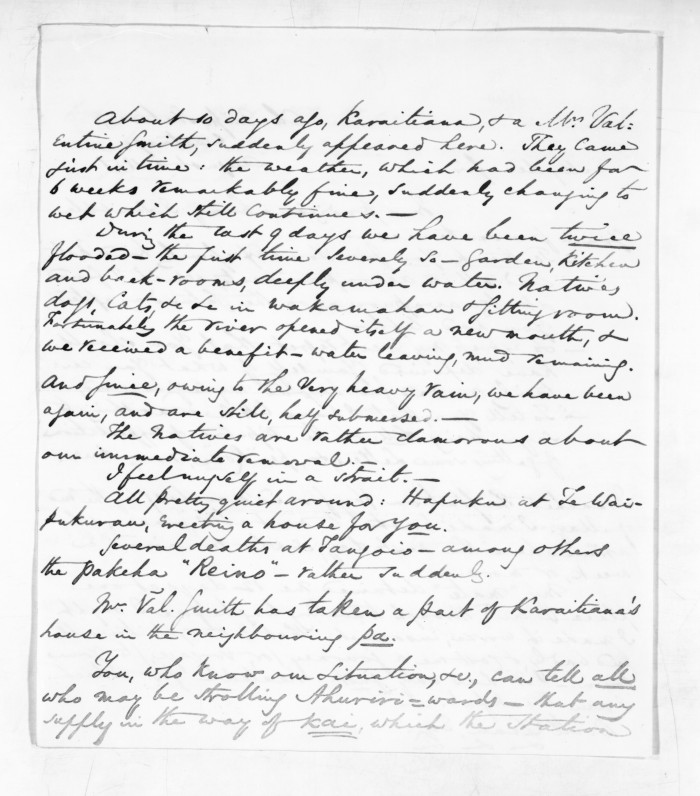 About 10 days ago, Karaitiana, & a Mr. Val=
entine Smith, suddenly appeared here. They came
just in time: the weather, which had been for
6 weeks remarkably fine, suddenly changing to
wet which still continues. —
During the last 9 days we have been twice
flooded — the first time severely so — garden, kitchen
and back-rooms, deeply under water. Natives
dogs, cats, &c &c in wakamahau & sitting room.
Fortunately, the river opened itself a new mouth, &
we received a benefit — water leaving, mud remaining.
And since, owing to the very heavy rain, we have been
again, and are still, half submersed. —
The Natives are rather clamorous about
our immediate removal. —
I feel myself in a strait. —
All pretty quiet around: Hapuku at Te Wai-
pukurau, erecting a house for you.
Several deaths at Tangoio — among others
the pakeha "Reino" — rather suddenly.
Mr. Val. Smith has taken a part of Karaitiana's
house in the neighbouring pa.
You, who know our situation, &c., can tell all
who may be strolling Ahuriri=wards — that any
supply in the way of kai, which the Station